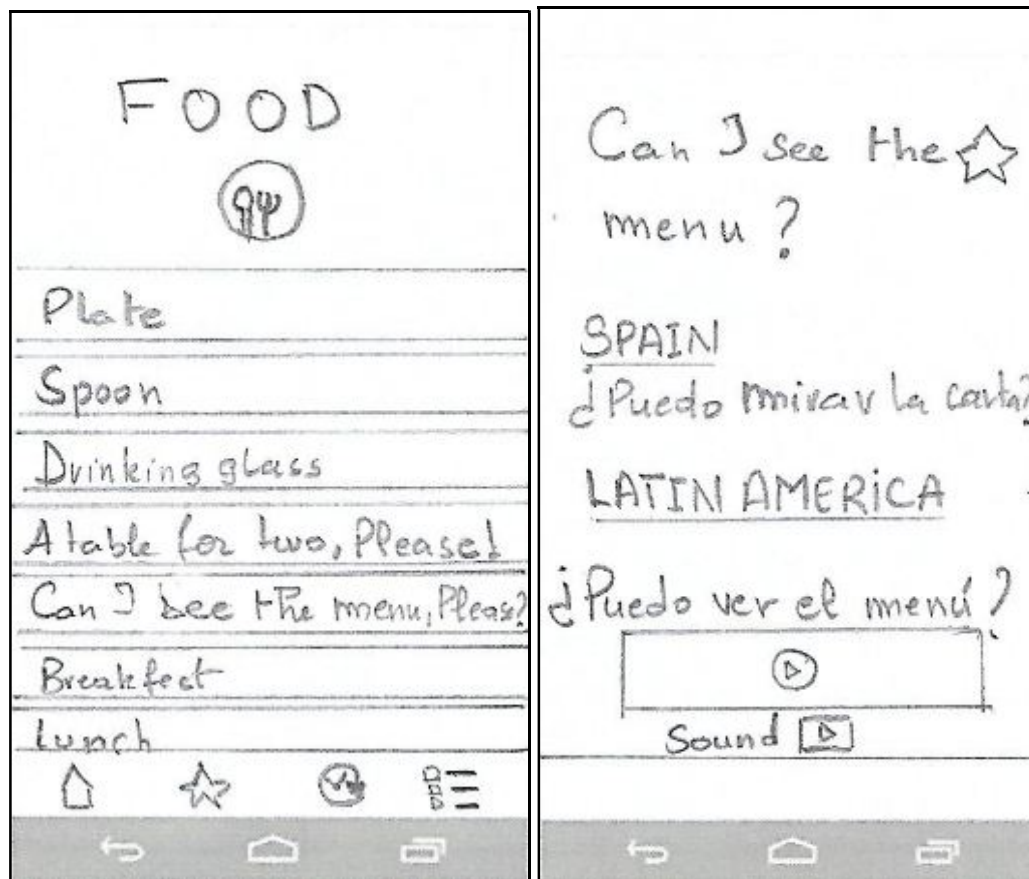 FOOD
Plate
Spoon
Drinking glass
A table for two, Please!
Can I see the menu, Please?
Breakfast
Lunch
Can I see the
menu?
SPAIN
¿Puedo mirar la carta?
LATIN AMERICA
¿Puedo ver el menú?
Sound